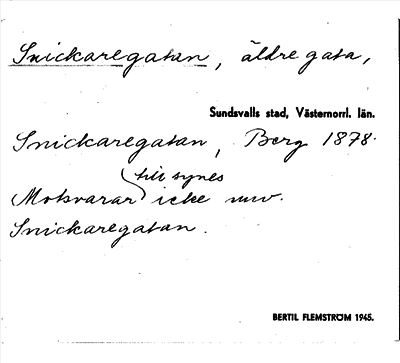 Snickaregatan, äldre gata,
Sundsvalls stad, Västernorrl. län.
Snickaregatan, Berg 1878.
till synes
Motsvarar icke nuv.
Snickaregatan.
BERTIL FLEMSTRÖM 1945.